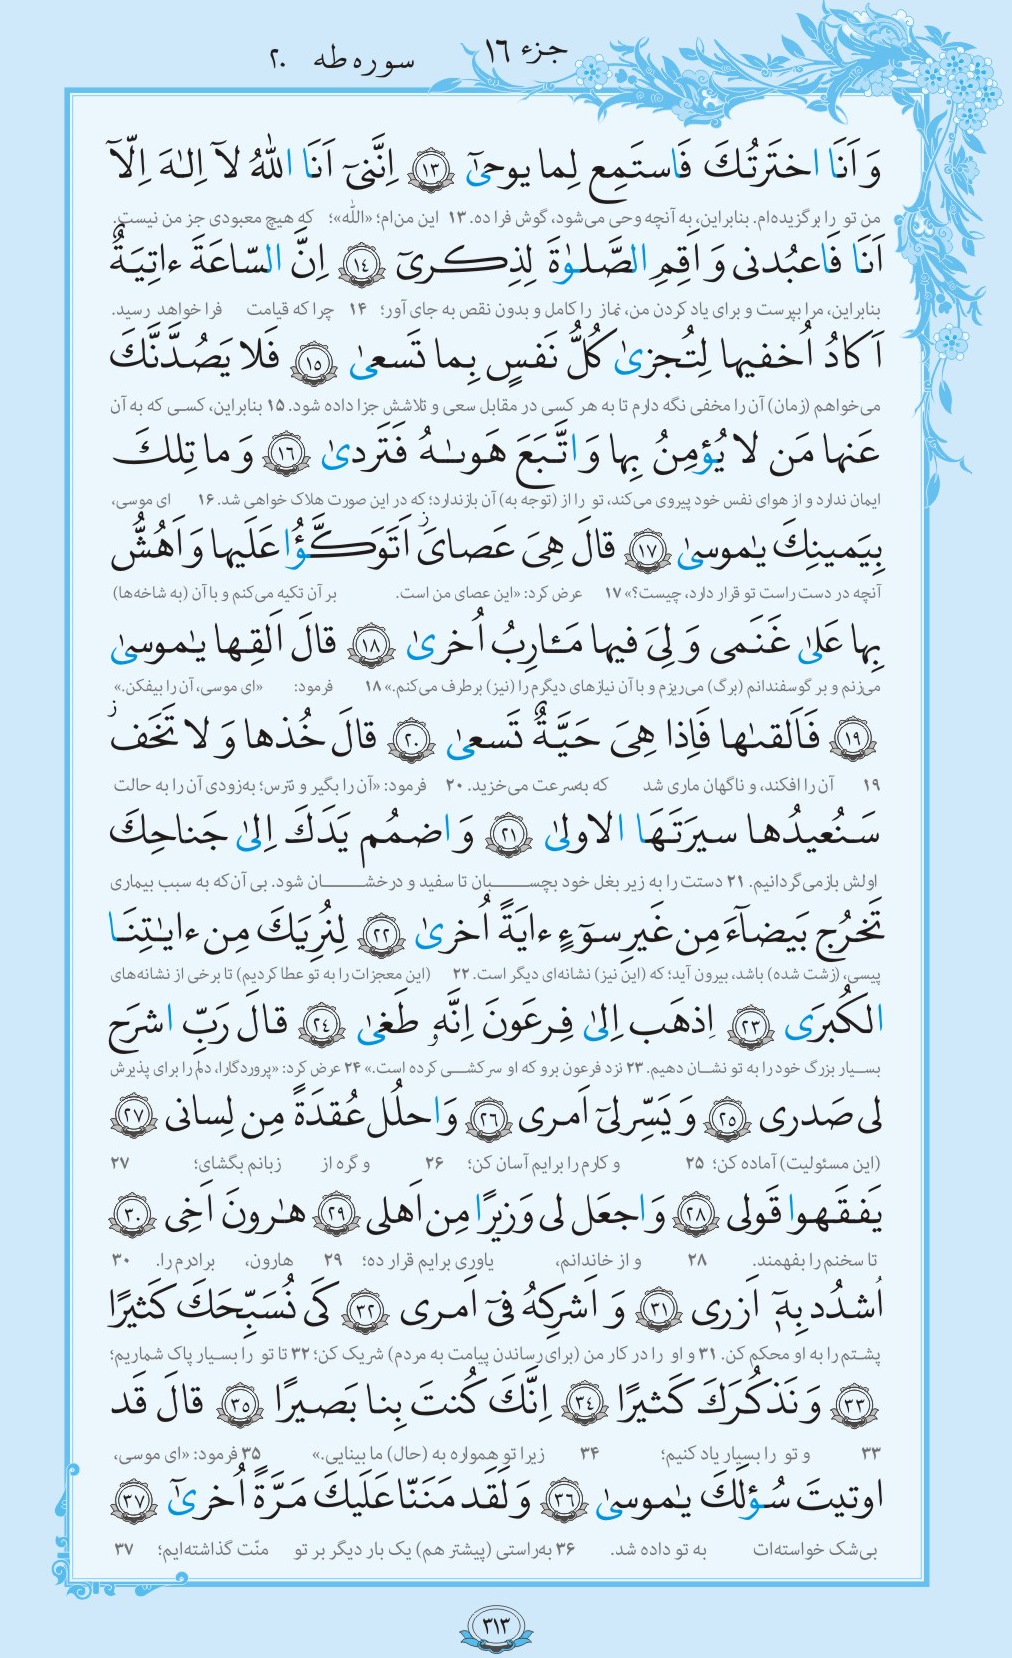 جزء ١٦
سوره طه ٢٠
وَ اَنَا اختَرتُكَ فَاستَمِع لِما يوحىٰٓ ﴿١٣﴾ اِنَّنىٓ اَنَا اللّٰهُ لآ اِلـٰهَ اِلّآ
من تو را برگزیده‌ام. بنابراین، به آنچه وحی می‌شود، گوش فرا ده. ۱۳ این من‌ام؛ «اللّٰه»؛ که هیچ معبودی جز من نیست.
اَنَا فَاعبُدنى وَ اَقِمِ الصَّلوٰةَ لِذِكـرىٓ ﴿١٤﴾ اِنَّ السّاعَةَ ءاتِيَةٌ
بنابراین، مرا بپرست و برای یاد کردن من، نماز را کامل و بدون نقص به جای آور؛ ۱۴ چرا که قیامت فرا خواهد رسید.
اَكادُ اُخفيها لِتُجزىٰ كُلُّ نَفسٍ بِما تَسعىٰ ﴿١٥﴾ فَلا يَصُدَّنَّكَ
می‌خواهم (زمان) آن را مخفی نگه دارم تا به هر کسی در مقابل سعی و تلاشش جزا داده شود. ۱۵ بنابراین، کسی که به آن
عَنها مَن لا يُؤمِنُ بِها وَ اتَّبَعَ هَوىٰهُ فَتَردىٰ ﴿١٦﴾ وَ ما تِلكَ
ایمان ندارد و از هوای نفس خود پیروی می‌کند، تو را از (توجه به) آن بازندارد؛ که در این صورت هلاک خواهی شد. ۱۶ ای موسی،
بِيَمينِكَ يـٰموسىٰ ﴿١٧﴾ قالَ هِىَ عَصاىَ اَتَوَكَّـؤُا عَلَيها وَ اَهُشُّ
آنچه در دست راست تو قرار دارد، چیست؟» ۱۷ عرض کرد: «این عصای من است. بر آن تکیه می‌کنم و با آن (به شاخه‌ها)
بِها عَلىٰ غَنَمى وَ لِىَ فيها مَـٔارِبُ اُخرىٰ ﴿١٨﴾ قالَ اَلقِـها يـٰموسىٰ
می‌زنم و بر گوسفندانم (برگ) می‌ریزم و با آن نیازهای دیگرم را (نیز) برطرف می‌کنم.» ۱۸ فرمود: «ای موسی، آن را بیفکن.»
﴿١٩﴾ فَاَلقىٰها فَاِذا هِىَ حَيَّةٌ تَسعىٰ ﴿٢٠﴾ قالَ خُذها وَ لا تَخَف
۱۹ آن را افکند، و ناگهان ماری شد که به‌سرعت می‌خزید. ۲۰ فرمود: «آن را بگیر و نترس؛ به‌زودی آن را به حالت
سَـنُعيدُها سيرَتَهَا الاولىٰ ﴿٢١﴾ وَ اضمُم يَدَكَ اِلىٰ جَناحِكَ
اولش بازمی‌گردانیم. ۲۱ دستت را به زیر بغل خود بچسبان تا سفید و درخشان شود. بی آن‌که به سبب بیماری
تَخرُج بَيضآءَ مِن غَيرِ سوٓءٍ ءايَةً اُخرىٰ ﴿٢٢﴾ لِنُرِيَكَ مِن ءايـٰتِنَا
پیسی، (زشت شده) باشد، بیرون آید؛ که (این نیز) نشانه‌ای دیگر است. ۲۲ (این معجزات را به تو عطا کردیم) تا برخی از نشانه‌های
الكُبرَى ﴿٢٣﴾ اِذهَب اِلىٰ فِرعَونَ اِنَّهو طَغىٰ ﴿٢٤﴾ قالَ رَبِّ اشرَح
بسیار بزرگ خود را به تو نشان دهیم. ۲۳ نزد فرعون برو که او سرکشی کرده است.» ۲۴ عرض کرد: «پروردگارا، دلم را برای پذیرش
لى صَدرى ﴿٢٥﴾ وَ يَسِّرلىٓ اَمرى ﴿٢٦﴾ وَ احلُل عُقدَةً مِن لِسانى ﴿٢٧﴾
(این مسئولیت) آماده کن؛ ۲۵ و کارم را برایم آسان کن؛ ۲۶ و گره از زبانم بگشای؛ ۲۷
يَفقَهوا قَولى ﴿٢٨﴾ وَ اجعَل لى وَزيرًا مِن اَهلى ﴿٢٩﴾ هـٰرونَ اَخِى ﴿٣٠﴾
تا سخنم را بفهمند. ۲۸ و از خاندانم، یاوری برایم قرار ده؛ ۲۹ هارون، برادرم را. ۳۰
اُشدُد بِهٓ اَزرى ﴿٣١﴾ وَ اَشرِكهُ فىٓ اَمرى ﴿٣٢﴾ كَى نُسَبِّحَكَ كَثيرًا
پشتم را به او محکم کن. ۳۱ و او را در کار من (برای رساندن پیامت به مردم) شریک کن؛ ۳۲ تا تو را بسیار پاک شماریم؛
﴿٣٣﴾ وَ نَذكُرَكَ كَثيرًا ﴿٣٤﴾ اِنَّكَ كُنتَ بِنا بَصيرًا ﴿٣٥﴾ قالَ قَد
۳۳ و تو را بسیار یاد کنیم؛ ۳۴ زیرا تو همواره به (حال) ما بینایی.» ۳۵ فرمود: «ای موسی،
اوتيتَ سُؤلَكَ يـٰموسىٰ ﴿٣٦﴾ وَ لَقَد مَنَنّا عَلَيكَ مَرَّةً اُخرىٰٓ ﴿٣٧﴾
بی‌شک خواسته‌ات به تو داده شد. ۳۶ به‌راستی (پیشتر هم) یک بار دیگر بر تو منّت گذاشته‌ایم؛ ۳۷
۳۱۳